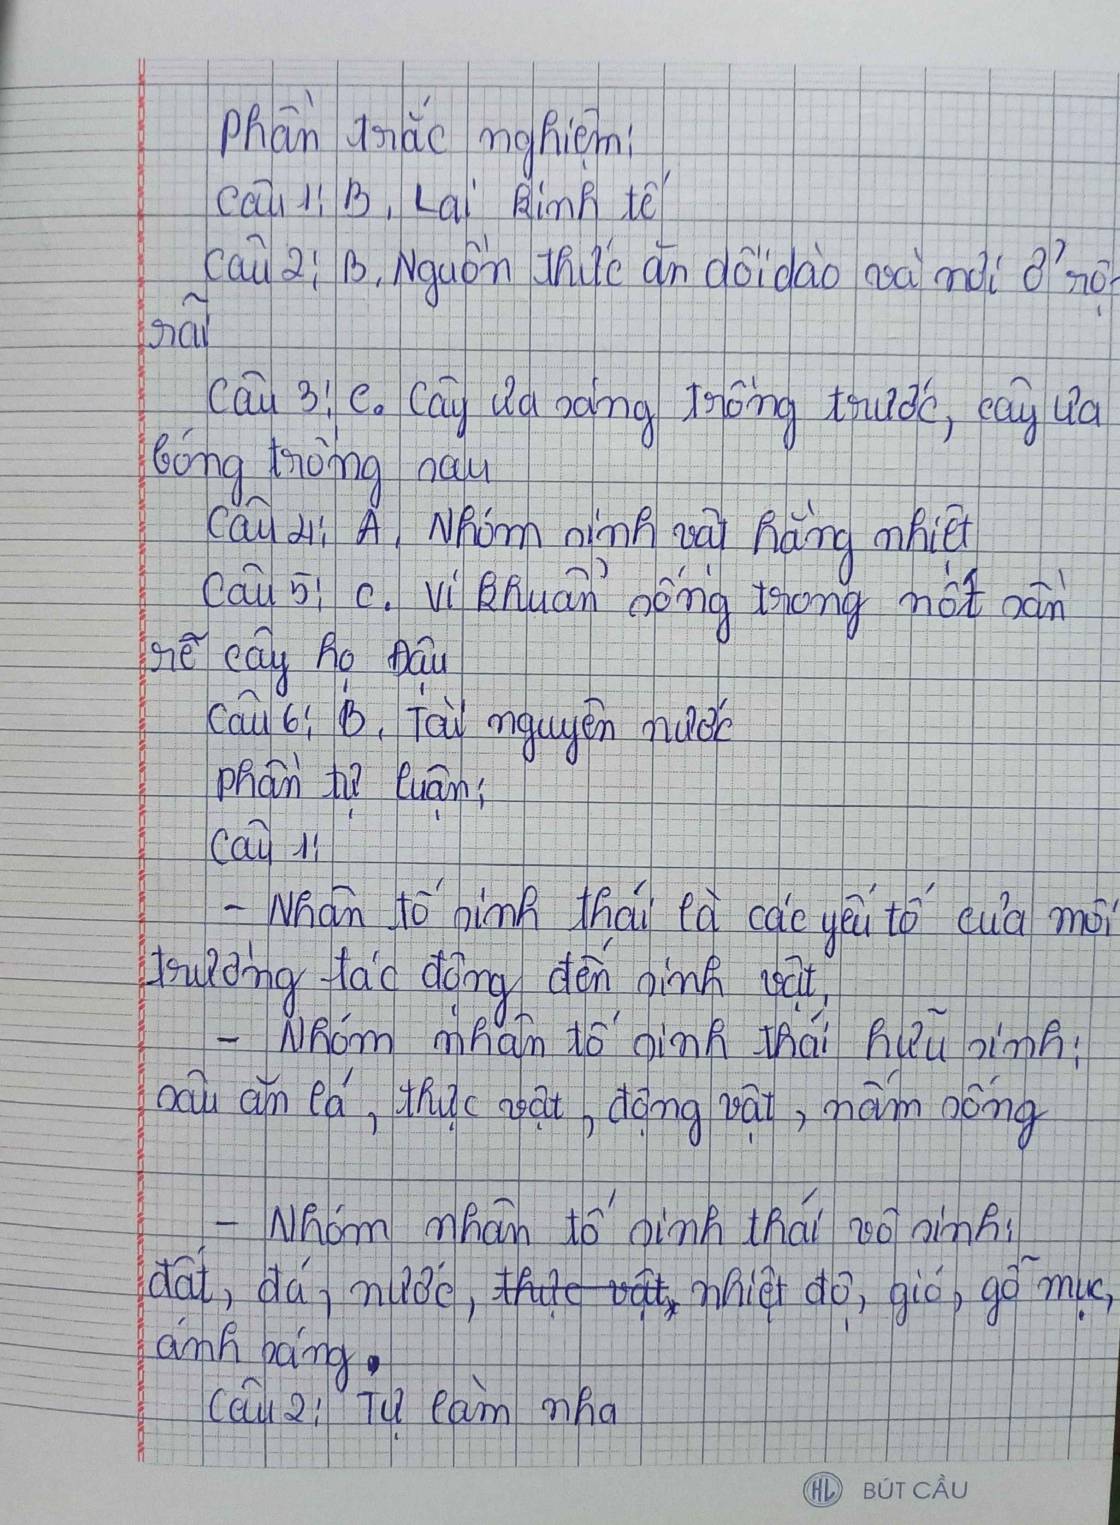 Phần trắc nghiệm:
Câu 1: B. Lai kinh tế
Câu 2: B. Nguồn thức ăn dồi dào và nơi ở rộng
rãi
Câu 3: C. Cây ưa sáng trồng trước, cây ưa
bóng trồng sau
Câu 4: A. Nhóm sinh vật hằng nhiệt
Câu 5: C. Vi khuẩn sống trong nốt sần
rễ cây họ Đậu
Câu 6: B. Tài nguyên nước
Phần tự luận:
Câu 1:
- Nhân tố sinh thái là các yếu tố của môi
trường tác động đến sinh vật.
- Nhóm nhân tố sinh thái hữu sinh:
sâu ăn lá, thực vật, động vật, nấm sống
- Nhóm nhân tố sinh thái vô sinh:
đất, đá, nước, thực vật, nhiệt độ, gió, gỗ mục,
ánh sáng.
Câu 2: Tự làm nha
HL BÚT CẦU